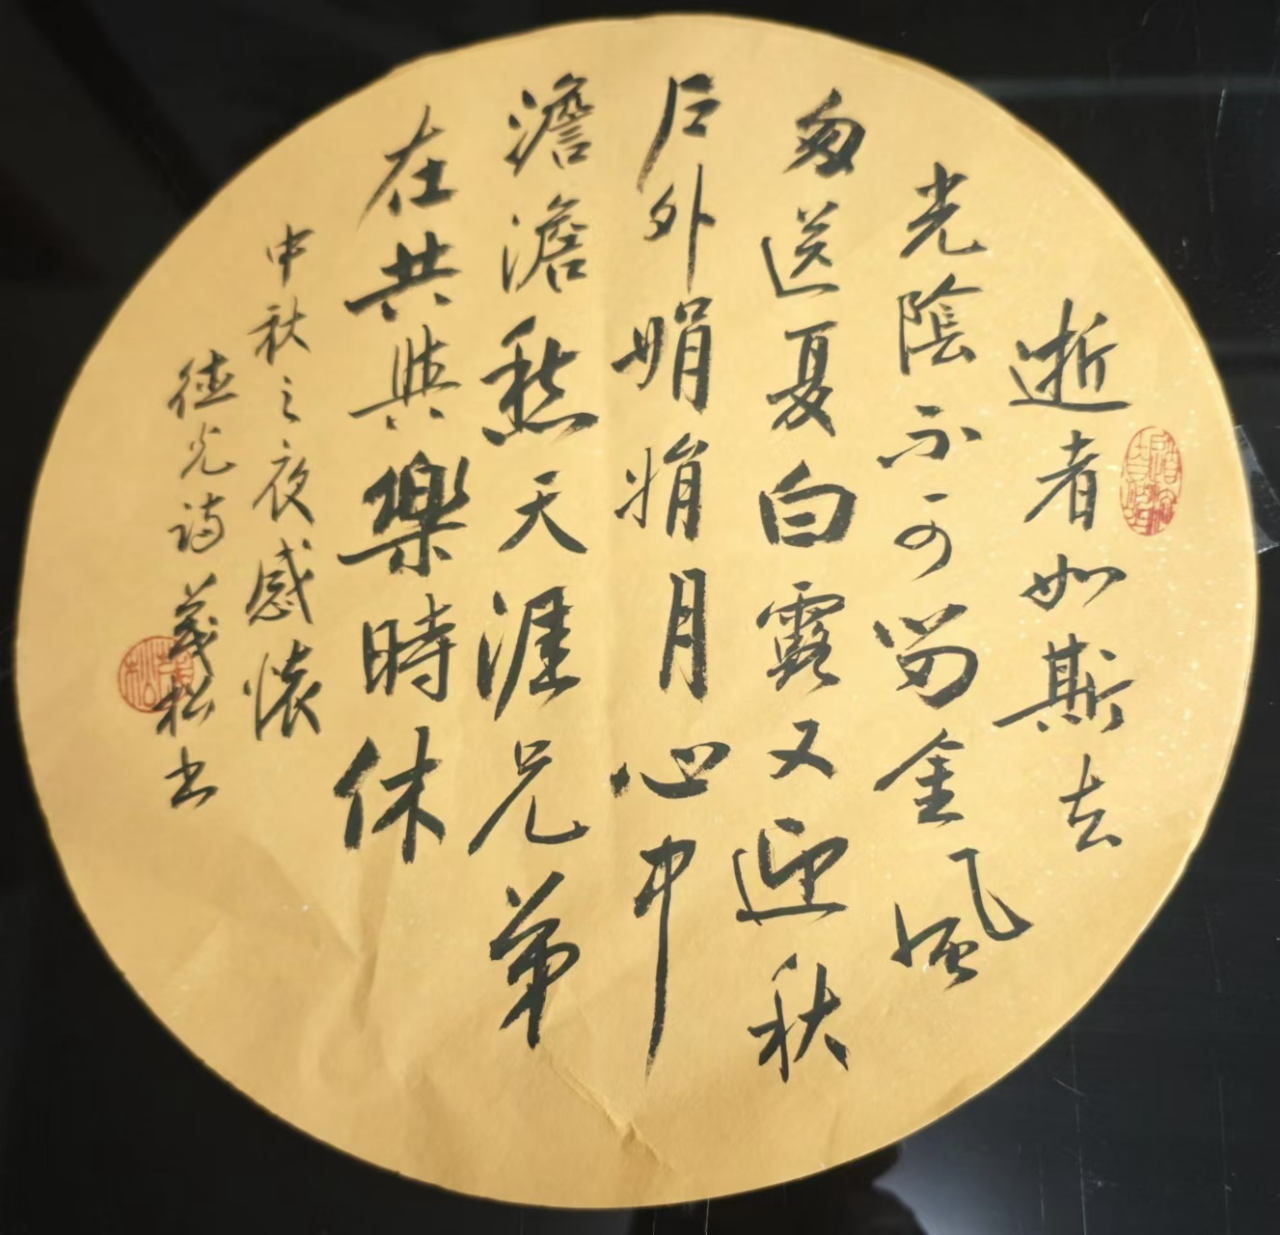 逝者如斯去
光陰不可留金風
匆送夏白露又迎秋
户外娟娟月心中
澹澹愁天涯兄弟
在共與樂時休
中秋之夜感懷
德光詩松书